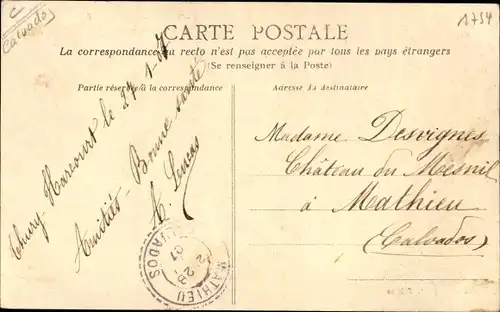 C
Calvados
1754
CARTE POSTALE
La correspondance au recto n'est pas acceptée par tous les pays étrangers
(Se renseigner à la Poste)
Partie réservée à la correspondance
Adresse du destinataire
Thury-Harcourt le 27-1-07
Amitiés - Bonne santé
A.
Madame Desvignes
Château du Mesnil
à Mathieu
(Calvados)
MATHIEU
CALVADOS
28
07